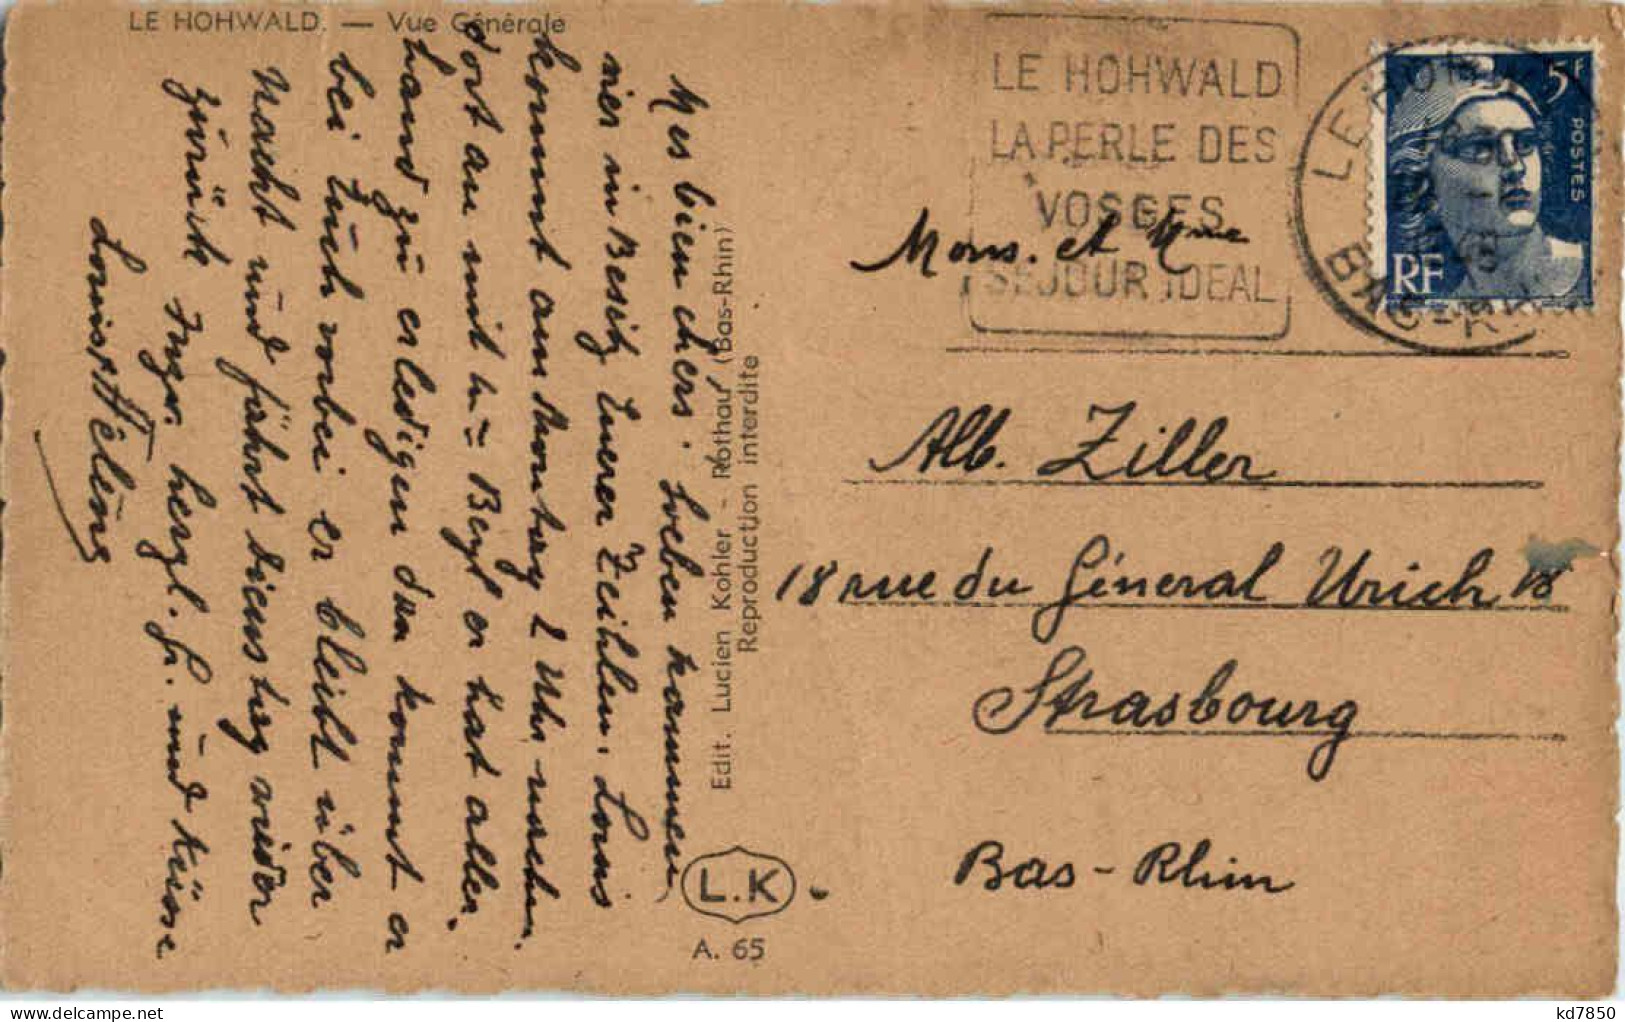 LE HOHWALD. — Vue Générale
LE HOHWALD
LA PERLE DES
VOSGES
SEJOUR IDEAL
LE HOHWALD
BAS-RHIN
5F
POSTES
RF
Mes bien chers. Soeben kammen
wir in Besitz Euerer Zeihlen. Louis
kommt am Montag 2 Uhr nachm.
dort an mit
Beyl er hat aller
hand zu erledigen dan kommt er
bei Euch vorbei er bleibt über
Nacht und fährt dienstag wieder
zurük
herzl. Gr. und Küsse
Louis Hélène
Edit. Lucien Kohler - Rothau (Bas-Rhin)
Reproduction interdite
L.K
A. 65
Mons. et Mme
Alb. Ziller
18 rue du Géneral Urich 18
Strasbourg
Bas-Rhin
kd7850